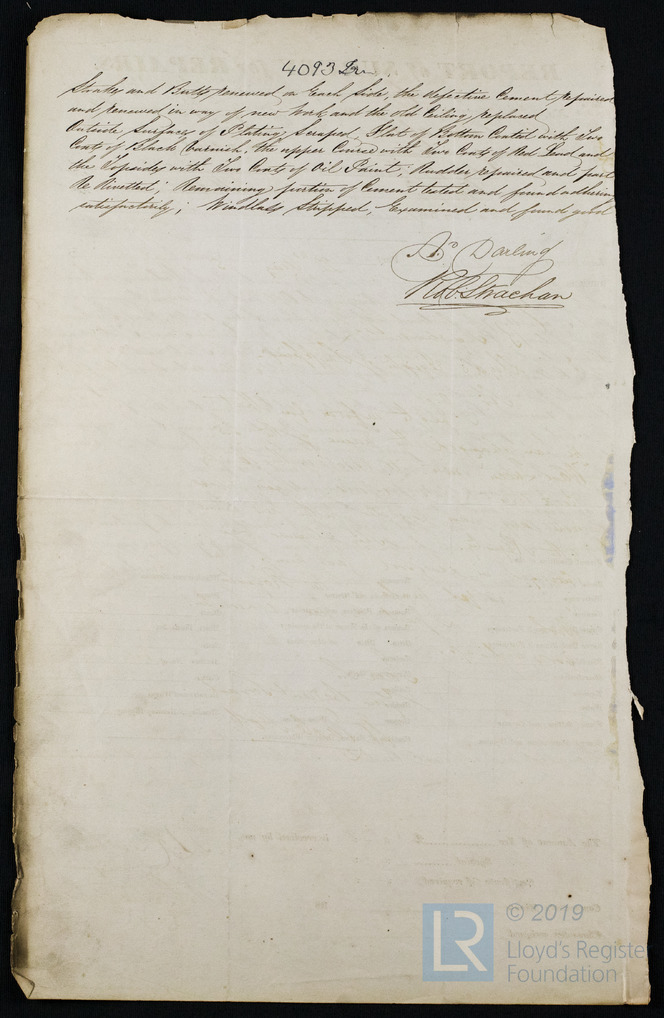 4093 Iron
Strakes and Butts renewed on Each Side, the defective Cement repaired
and renewed in way of new work and the old Ceiling replaced
Outside Surface of Plating Scraped, Flat of Bottom Coated with Two
Coats of Black Varnish, the upper Course with Two Coats of Red Lead and
the Topsides with Two Coats of Oil Paint; Rudder repaired and part
Re Rivetted; Remaining portion of Cement tested and found adhering
satisfactorily; Windlass Stripped, Examined and found good
Darling
Robt. Strachan
LR
© 2019
Lloyd's Register
Foundation